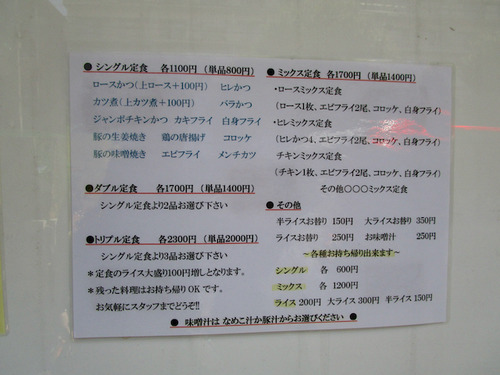 ● シングル定食　各1100円（単品800円）
ロースかつ（上ロース＋100円）　ヒレかつ
カツ煮（上ロース＋100円）　バラかつ
ジャンボチキンかつ　カキフライ　白身フライ
豚の生姜焼き　鶏の唐揚げ　コロッケ
豚の味噌焼き　エビフライ　メンチカツ
● ダブル定食　各1700円（単品1400円）
シングル定食より2品お選び下さい
●トリプル定食　各2300円（単品2000円）
シングル定食より3品お選び下さい
＊定食のライス大盛り100円増しとなります。
＊残った料理はお持ち帰りOKです。
お気軽にスタッフまでどうぞ!!
● ミックス定食　各1700円（単品1400円）
・ロースミックス定食
（ロース1枚、エビフライ2尾、コロッケ、白身フライ）
・ヒレミックス定食
（ヒレかつ4、エビフライ2尾、コロッケ、白身フライ）
チキンミックス定食
（チキン1枚、エビフライ2尾、コロッケ、白身フライ）
その他〇〇〇ミックス定食
● その他
半ライスお替り　150円　大ライスお替り　350円
ライスお替り　250円　お味噌汁　250円
～各種お持ち帰り出来ます～
シングル　各　600円
ミックス　各　1200円
ライス 200円　大ライス 300円　半ライス 150円
● 味噌汁は なめこ汁か豚汁からお選びください ●